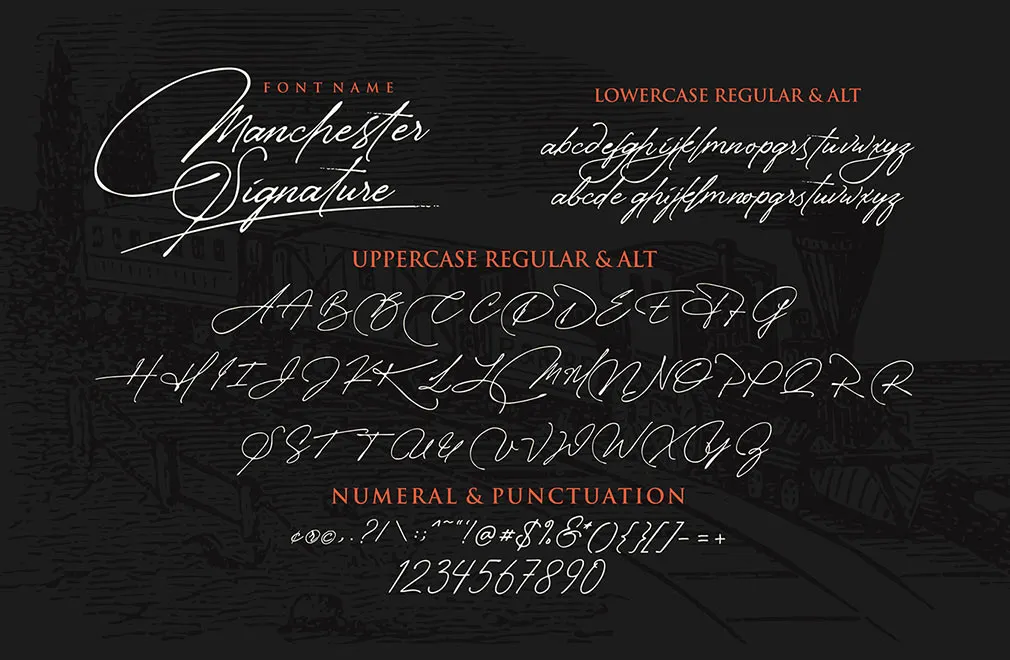 FONT NAME
Manchester
Signature
LOWERCASE REGULAR & ALT
abcdefghijklmnopqrstuvwxyz
abcde ghijklmnopqrstuvwxyz
UPPERCASE REGULAR & ALT
AABBCCCDDEEFFG
HHIIJJKKLLMMNNOPPQRR
SSTTUUVVWWXYZ
NUMERAL & PUNCTUATION
¢®©,.?/|\:;^~"'!@#$%&*(){}[]-=+
1234567890